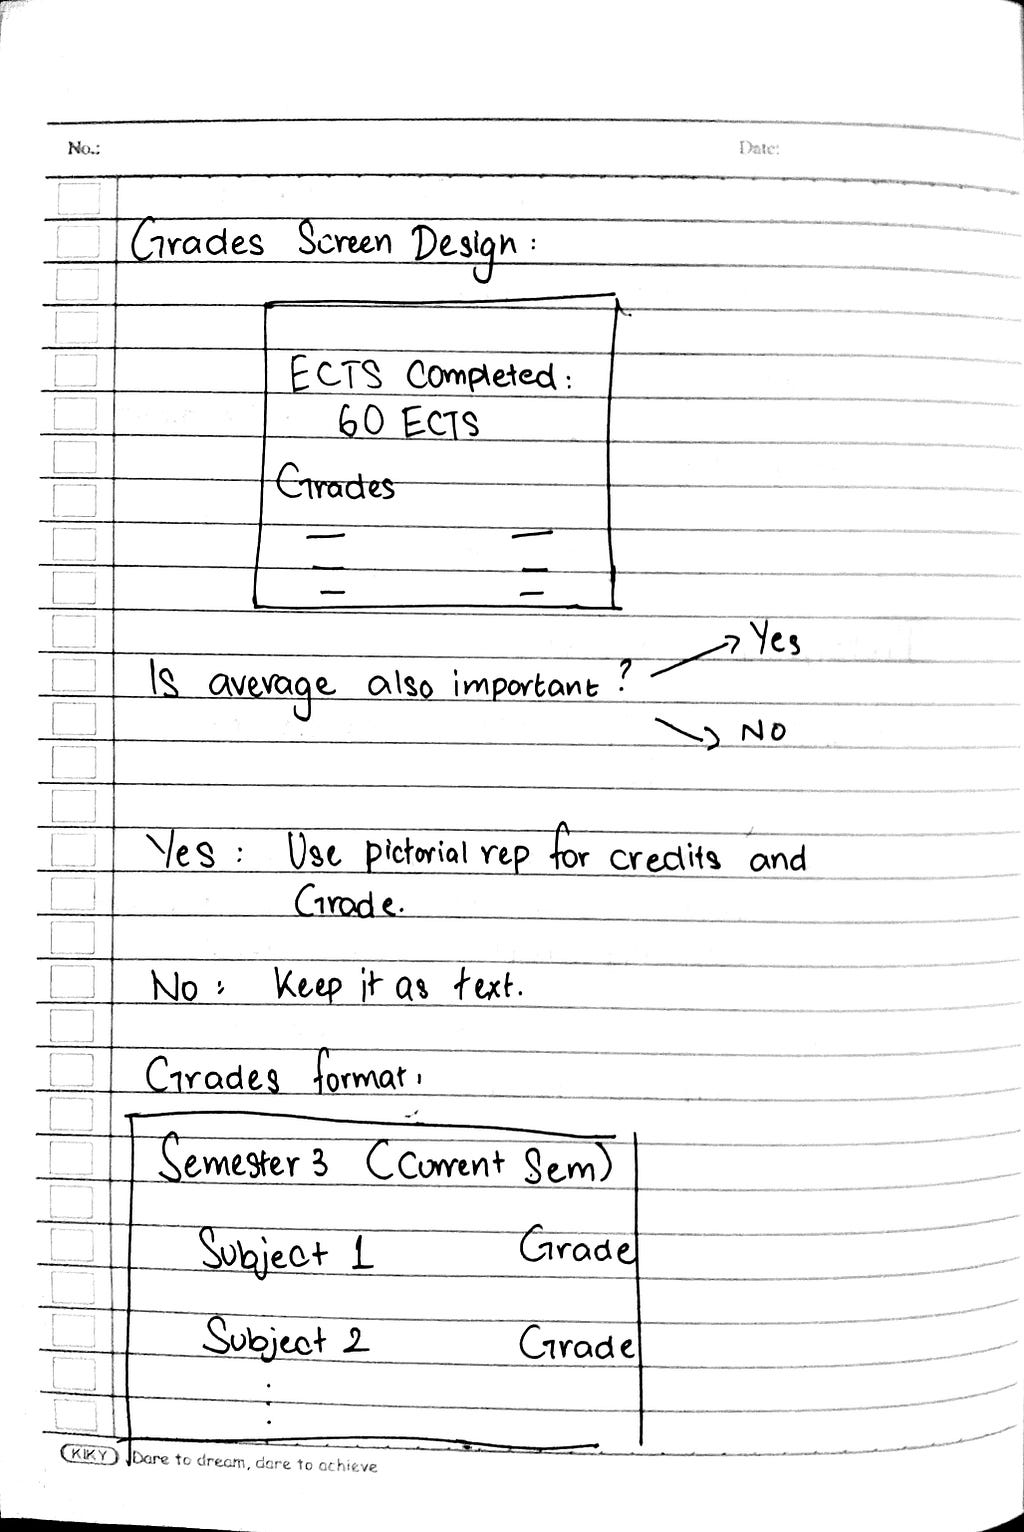 No.:
Date:
Grades Screen Design:
ECTS Completed:
60 ECTS
Grades
Is average also important?
Yes
NO
Yes: Use pictorial rep for credits and
Grade.
No: Keep it as text.
Grades format.
Semester 3 (Current Sem)
Subject 1 Grade
Subject 2 Grade
KIKY Dare to dream, dare to achieve